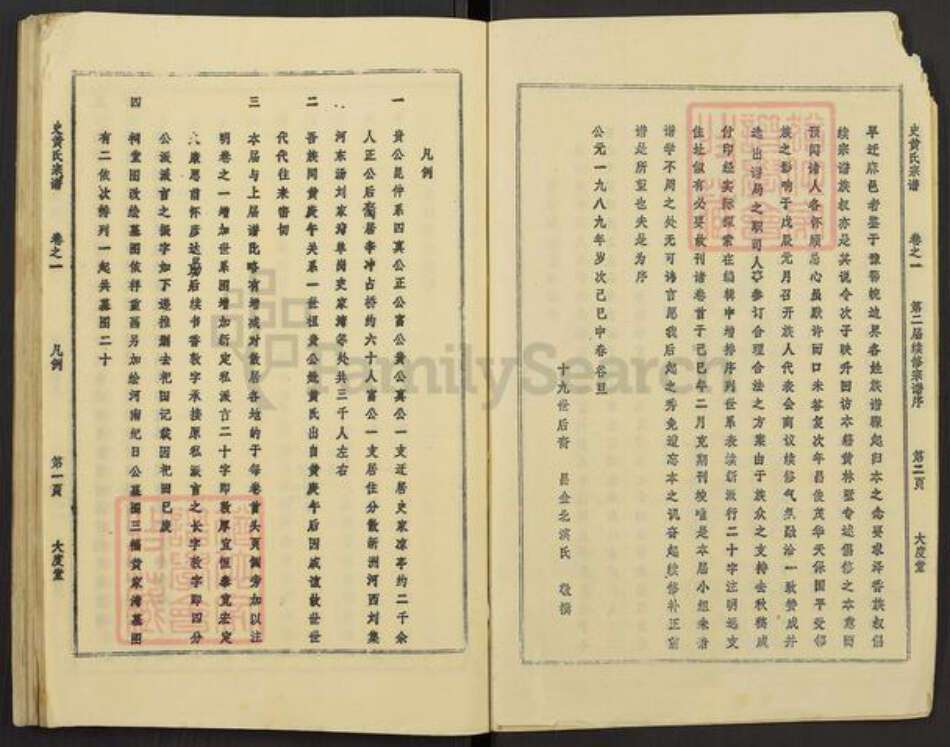 史黄氏宗谱 卷之一 第二届续修宗谱序 第二页 大度堂
早迁麻邑者鉴于豫鄂皖边界各姓族谱骤起归本之念要求泽香族叔倡
续宗谱族叔亦是其说令次子映升回访本籍黄林墅专述倡修之本意而
预闻诸人各怀顾忌心虽默许而口未答复次年昌俊英华天保国平受邻
族之影响于戊辰元月召开族人代表会商议续修气氛融洽一致赞成并
选出谱局之职司人 参订合理合法之方案由于族众之支持去秋稿成
付印经实际探索在编辑中增排序列世系表续新派行二十字注明迁支
住址似有必要故刊诸卷首于己巳年二月克期刊竣唯是本届小组未谙
谱学不周之处无可讳言愿我后起之秀免遗忘本之讥奋起续修补正前
谱是所望也夫是为序
公元一九八九年岁次己巳中春谷旦
十九世后裔 昌金北滨氏 敬撰
凡例
一 贵公昆仲系四真公正公富公贵公真公一支迁居史家凉亭约二千余
人正公后裔居李冲占桥约六十人富公一支居住分散新洲河西刘集
河东汤刘家湾单岗史家湾等处共三千人左右
二 吾族同黄庚午关系一世祖贵公妣黄氏出自黄庚午后因戚谊故世世
代代往来密切
三 本届与上届谱比略有增减对散居各地的于每卷首头页侧旁加以注
明卷之一增加世系图增加新定私派言二十字即敦厚宜恒泰克宏定
康恩前怀彦达 后续书香教字承接原私派言之长字教字即四分
公派派言之振字如下递推删去祀田记载因祀田已废
四 祠堂图改绘墓图依样重画另加绘河南纪日公墓图三幅黄家湾墓图
有二依次特列一起共墓图二十
史黄氏宗谱 卷之一 凡例 第一页 大度堂
FamilySearch